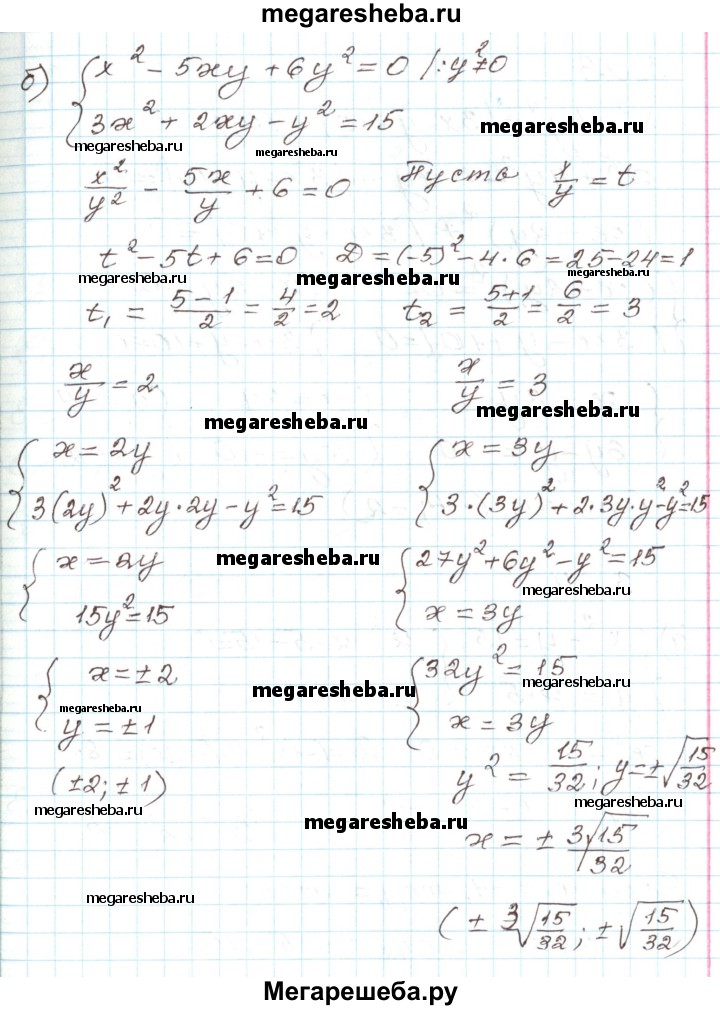 megaresheba.ru
б) { x² - 5xy + 6y² = 0 /: y² ≠ 0
3x² + 2xy - y² = 15
megaresheba.ru
megaresheba.ru megaresheba.ru
x²/y² - 5x/y + 6 = 0 Пусть x/y = t
t² - 5t + 6 = 0 D = (-5)² - 4·6 = 25 - 24 = 1
megaresheba.ru megaresheba.ru megaresheba.ru
t₁ = (5-1)/2 = 4/2 = 2 t₂ = (5+1)/2 = 6/2 = 3
x/y = 2 x/y = 3
megaresheba.ru megaresheba.ru
{ x = 2y { x = 3y
3(2y)² + 2y·2y - y² = 15 3·(3y)² + 2·3y·y - y² = 15
{ x = 2y megaresheba.ru { 27y² + 6y² - y² = 15
megaresheba.ru
15y² = 15 x = 3y
{ x = ±2 { 32y² = 15
megaresheba.ru megaresheba.ru megaresheba.ru
y = ±1 x = 3y
(±2; ±1) y² = 15/32; y = ±√(15/32)
megaresheba.ru megaresheba.ru megaresheba.ru
x = ± 3√15/√32
megaresheba.ru
(± 3√(15/32); ±√(15/32))
Мегарешеба.ру